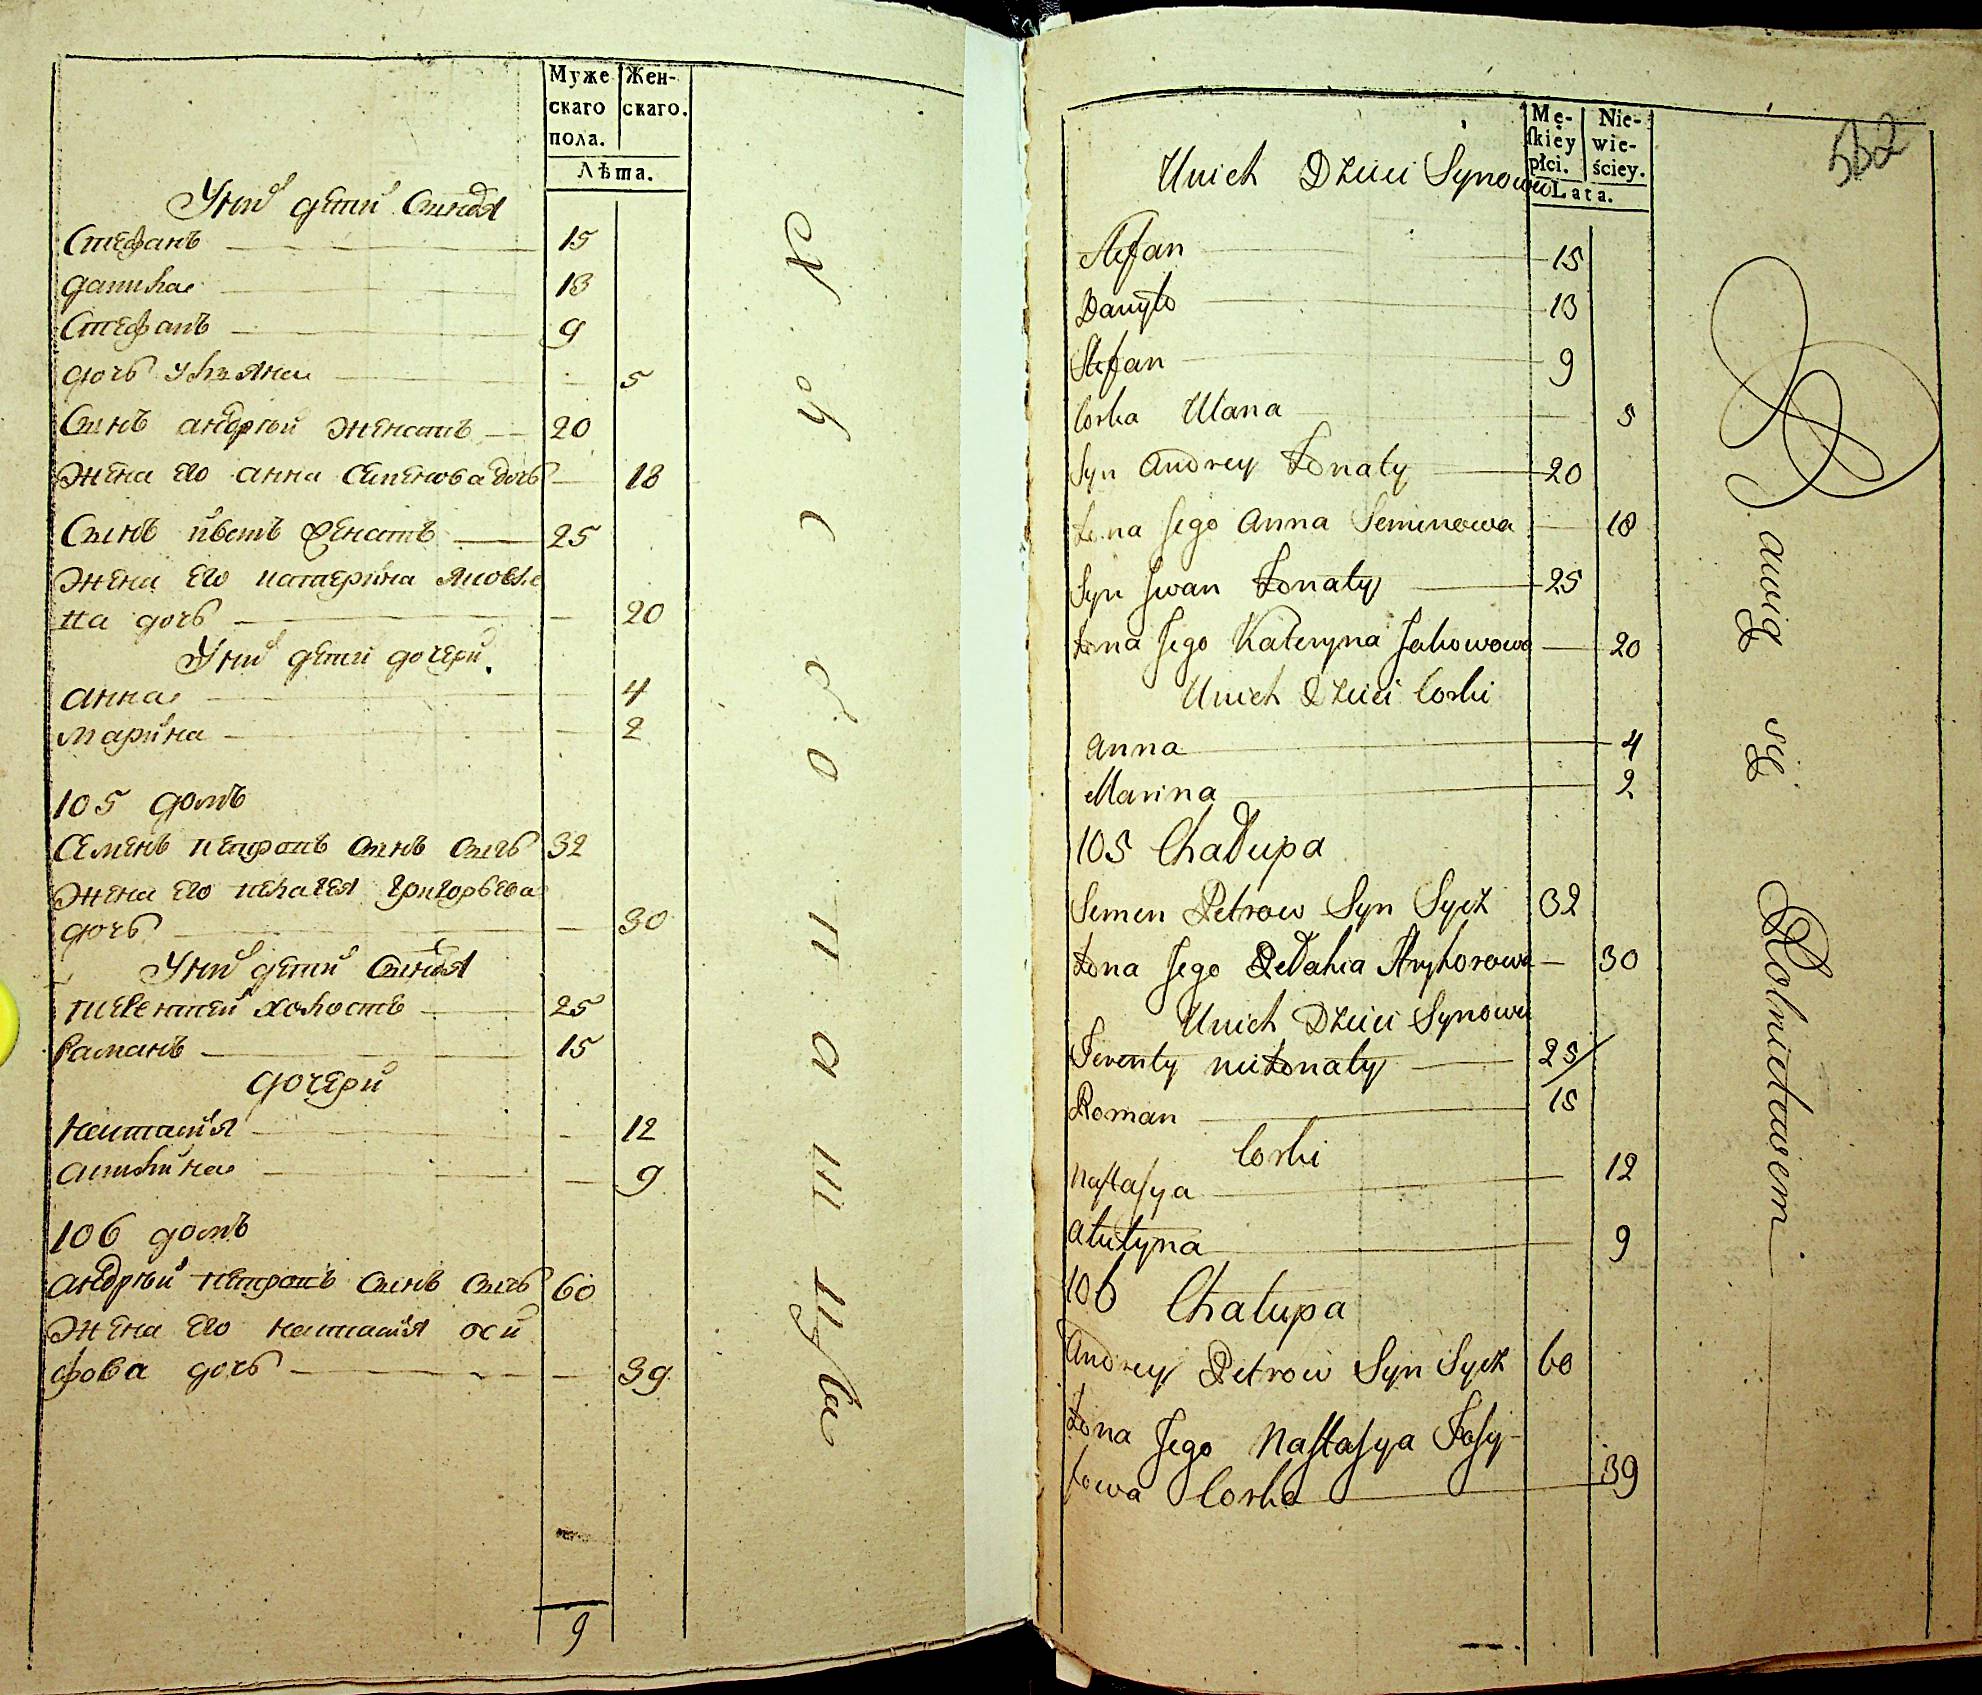 Муже Жен-
скаго скаго.
пола.
Лѣта.
Унид дети Синовя
Стефанъ 15
Данила 13
Стефанъ 9
дочь Ульяна 5
Синъ андрюй Женатъ 20
Жена его анна Семенова дочь 18
Сынъ иванъ Женатъ 25
Жена его катерина Яковле
на дочь 20
Унид дети дочери
анна 4
Марина 2
105 домъ
Семенъ петровъ синъ Сычь 32
Жена его пелагея григорьева
дочь 30
Унид дети Синовя
Романъ 15
дочери
Настасия 12
9
106 домъ
андрюй петровъ синъ Сычь 60
Жена его настасия оси
фова дочь 39
9
Хл ѣ б о п а ш ц
Mę- Nie-
ſkiéy wie-
płci. ściey.
Lata.
532
Unich Dzieci Synowie
Stefan 15
Danyło 13
Stefan 9
Corka Ulana 5
Syn Andrey Żonaty 20
Żona Jego Anna Semenowa 18
Syn Jwan Żonaty 25
Żona Jego Kateryna Jakowowa 20
Unich Dzieci Corki
Anna 4
Marina 2
105 Chałupa
Semen Petrow Syn Sycz 32
Żona Jego Pełahia Hryhorowa 30
Unich Dzieci Synowie
Terenty nieżonaty 25
Roman 15
Corki
Naſtaſya 12
9
106 Chałupa
Andrey Petrow Syn Sycz 60
Żona Jego Naſtaſya Joſy-
fowa Corka 39
Bawią się Rolnictwem